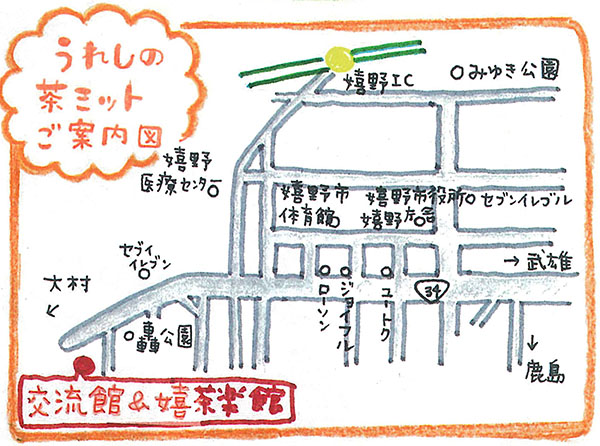 うれしの
茶ミット
ご案内図
嬉野IC
みゆき公園
嬉野
医療センター
嬉野市
体育館
嬉野市役所
嬉野庁舎
セブンイレブル
セブイ
イレブン
大村
→武雄
ローソン
ジョイフル
ユートク
34
轟公園
鹿島
交流館&嬉茶楽館